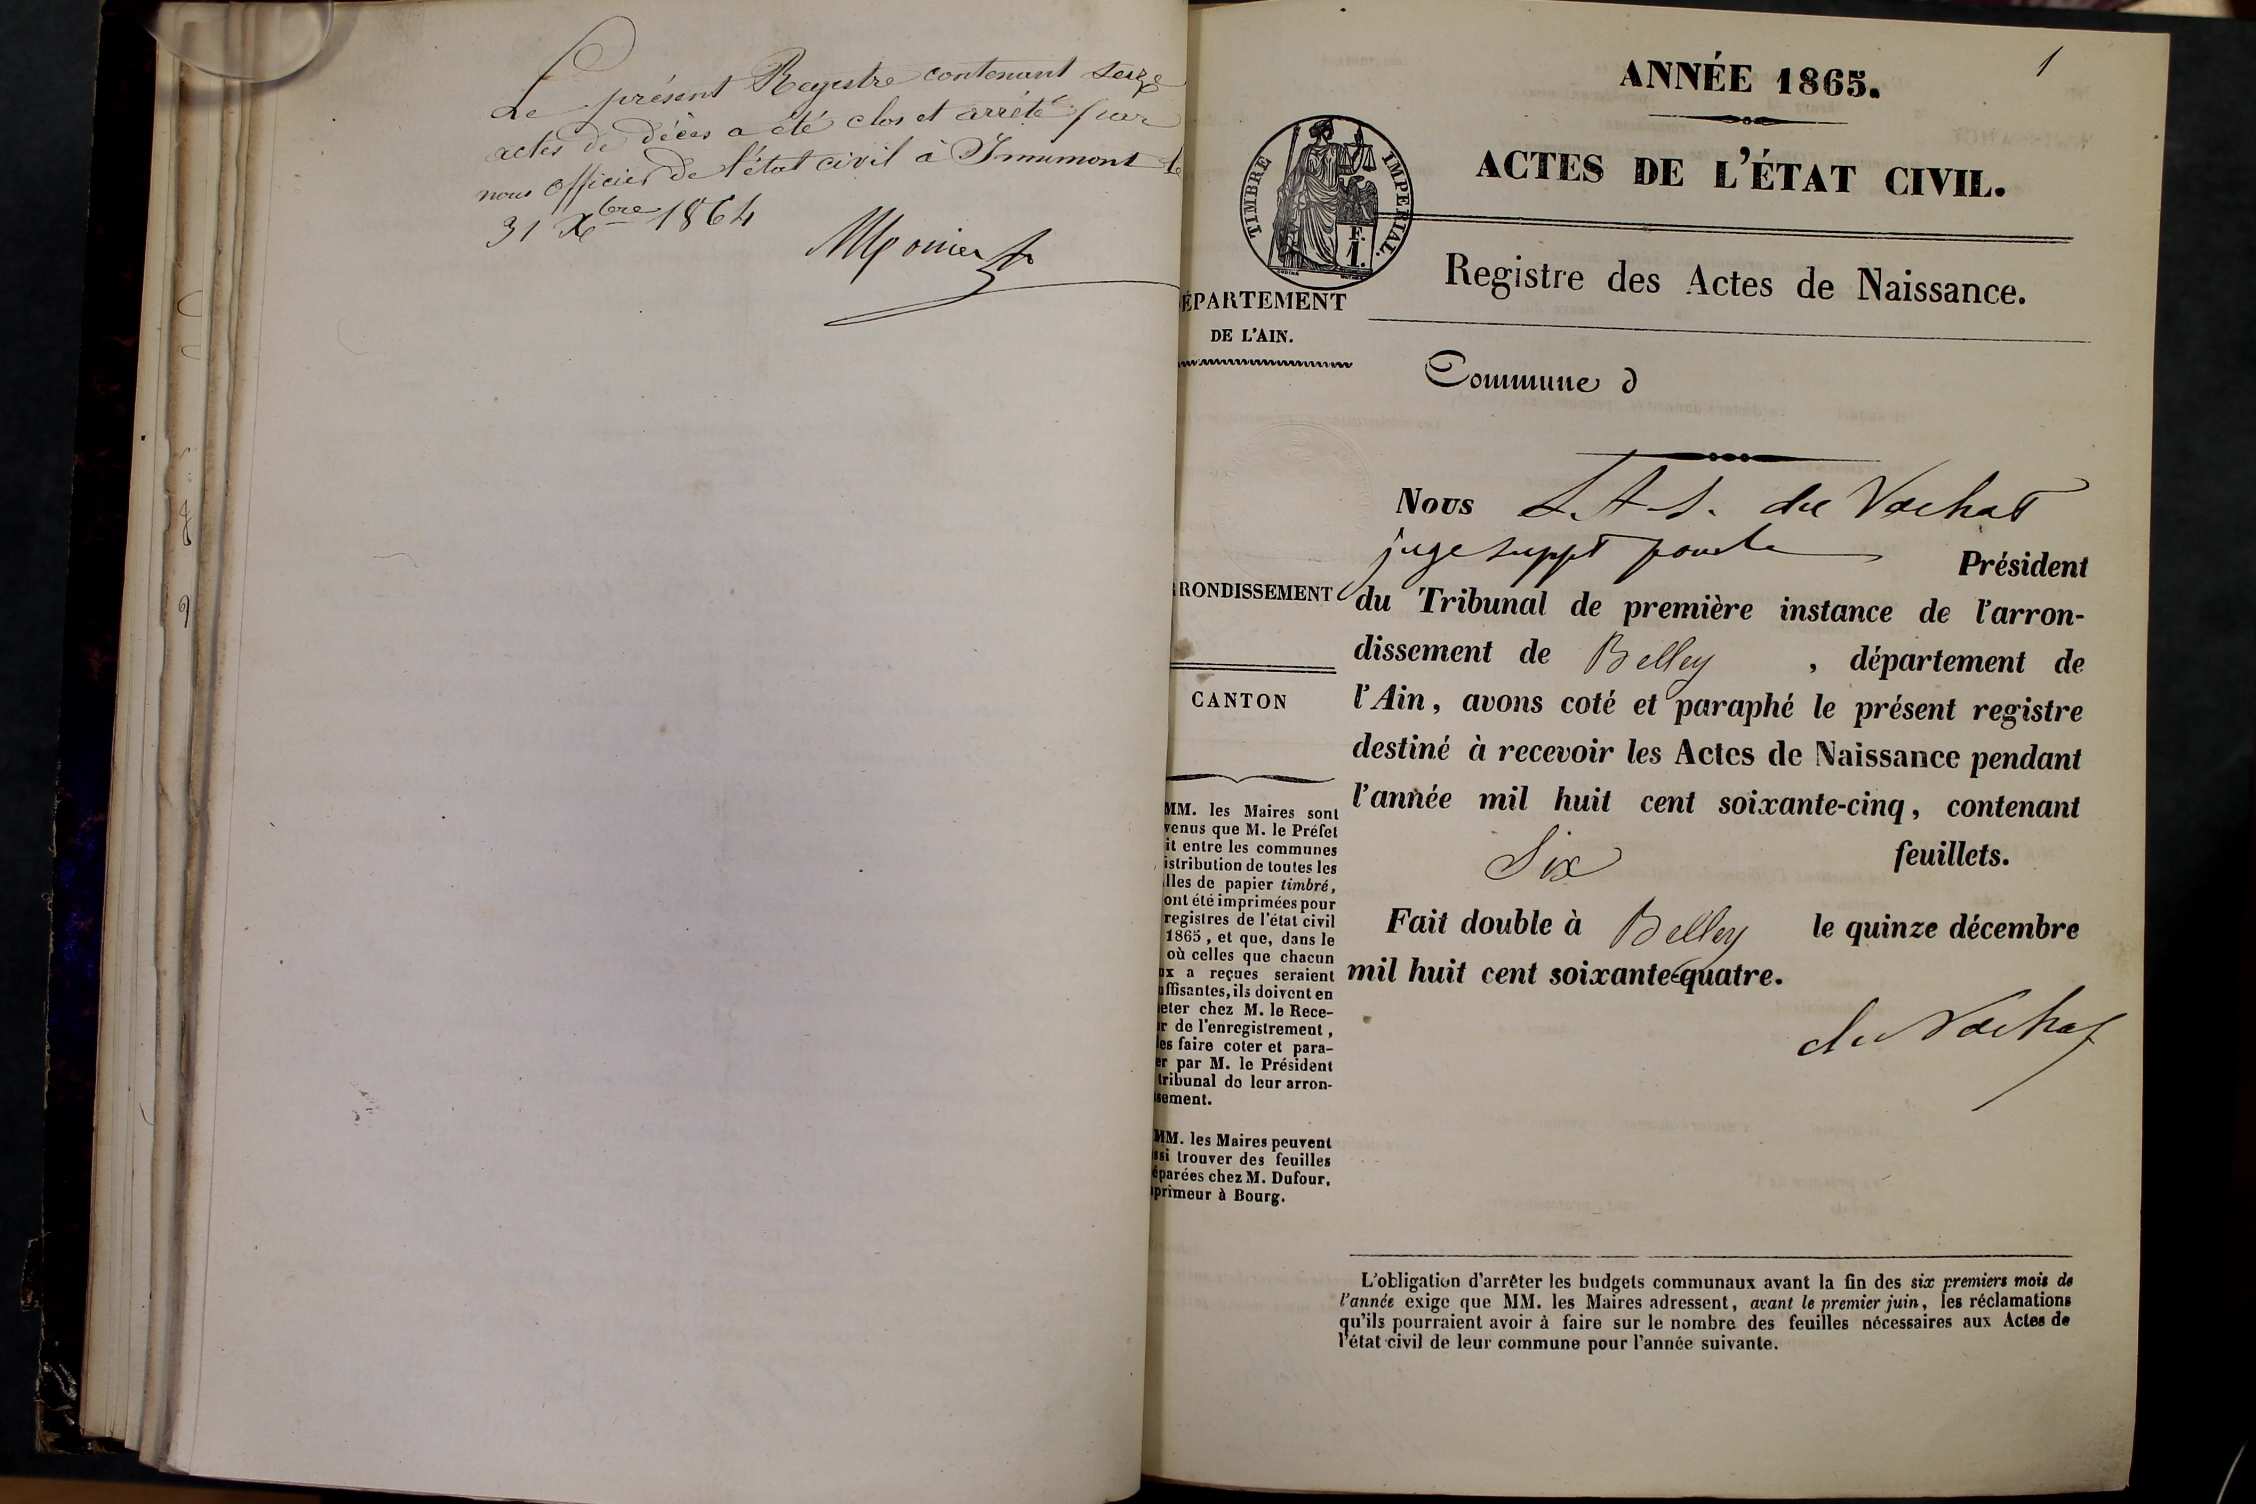 Le présent Regestre contenant seize
actes de décès a été clos et arrêté par
nous officier de l'état civil à Innimont le
31 Xbre 1864
Monier
1
ANNÉE 1865.
ACTES DE L'ÉTAT CIVIL.
TIMBRE IMPERIAL.
F.
1.
Registre des Actes de Naissance.
ÉPARTEMENT
DE L'AIN.
Commune d
Nous L. A. S. du Vachat
juge suppt pour le Président
du Tribunal de première instance de l'arron-
dissement de Belley , département de
l'Ain, avons coté et paraphé le présent registre
destiné à recevoir les Actes de Naissance pendant
l'année mil huit cent soixante-cinq, contenant
Six feuillets.
Fait double à Belley le quinze décembre
mil huit cent soixante-quatre.
du Vachat
RONDISSEMENT
CANTON
MM. les Maires sont
venus que M. le Préfet
it entre les communes
istribution de toutes les
lles de papier timbré,
ont été imprimées pour
registres de l'état civil
1865, et que, dans le
où celles que chacun
ux a reçues seraient
uffisantes, ils doivent en
eter chez M. le Rece-
r de l'enregistrement,
es faire coter et para-
er par M. le Président
tribunal de leur arron-
sement.
MM. les Maires peuvent
ssi trouver des feuilles
éparées chez M. Dufour,
primeur à Bourg.
L'obligation d'arrêter les budgets communaux avant la fin des six premiers mois de
l'année exige que MM. les Maires adressent, avant le premier juin, les réclamations
qu'ils pourraient avoir à faire sur le nombre des feuilles nécessaires aux Actes de
l'état civil de leur commune pour l'année suivante.